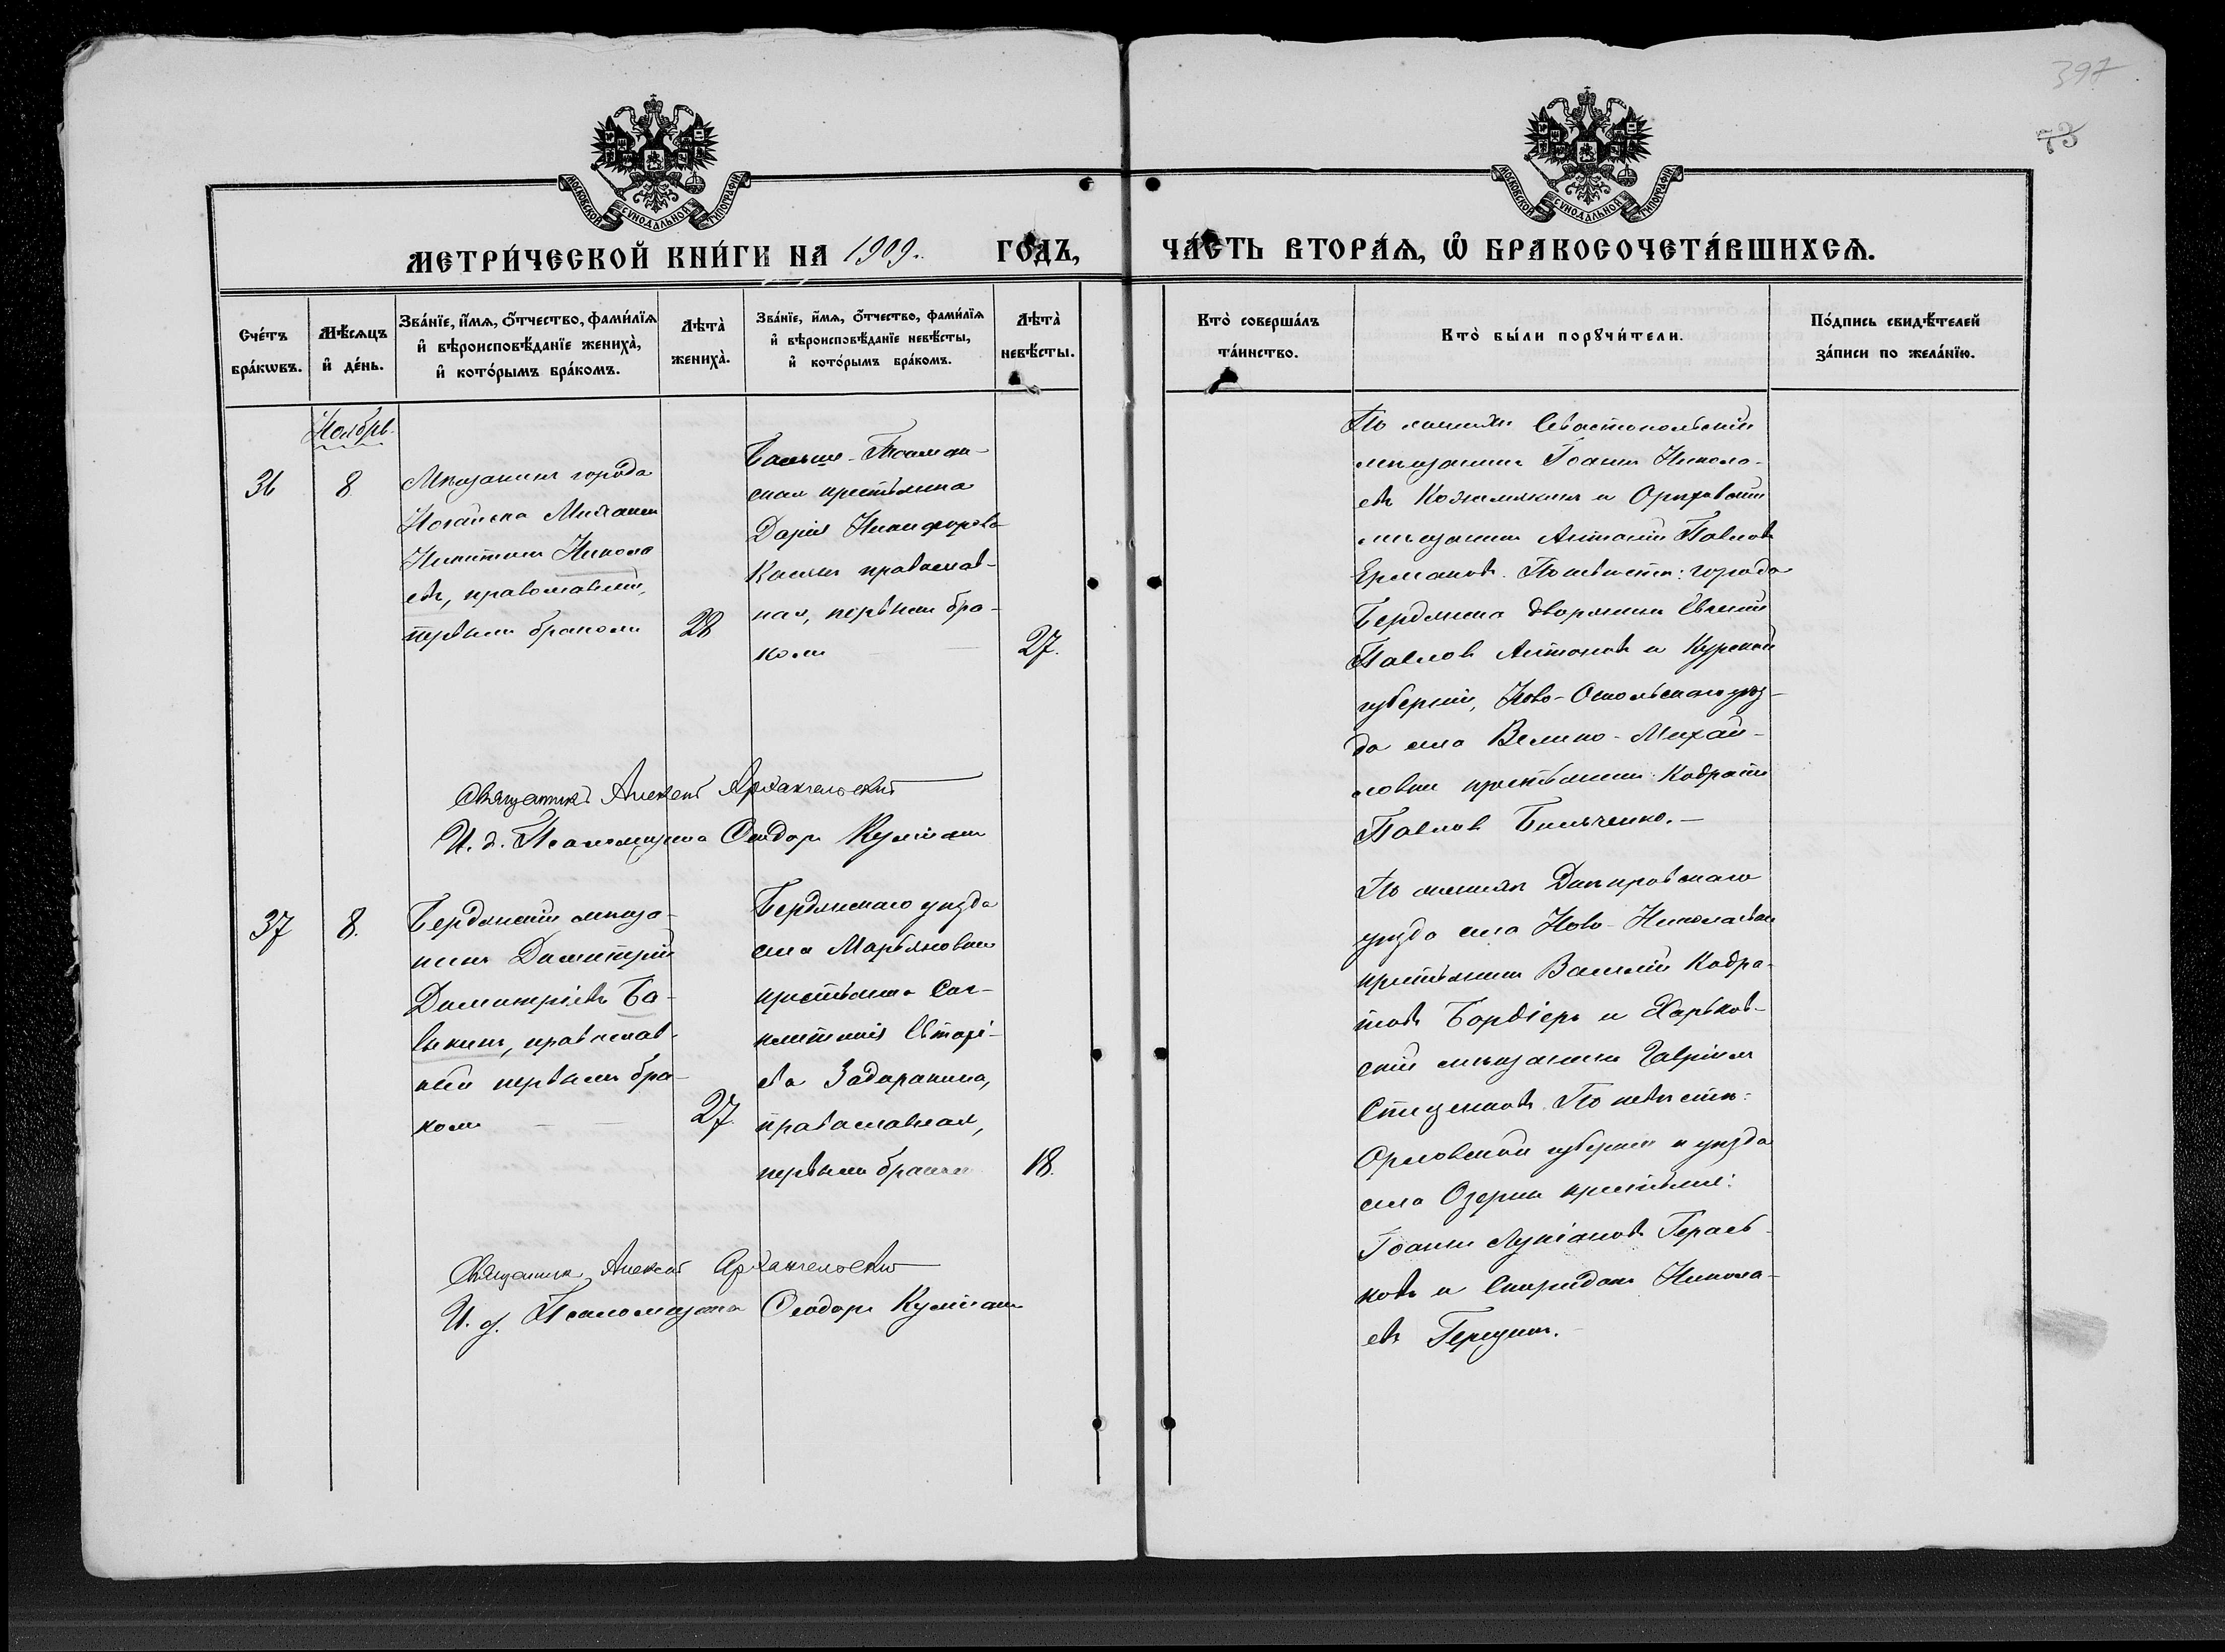 397
73
МОСКОВСКОЙ СѴНОДАЛЬНОЙ ТИПОГРАФІИ
МОСКОВСКОЙ СѴНОДАЛЬНОЙ ТИПОГРАФІИ
МЕТРИ́ЧЕСКОЙ КНИ́ГИ НА 1909. ГО́ДЪ,
ЧА́СТЬ ВТОРА́Ѧ, Ѿ БРАКОСОЧЕТА́ВШИХСѦ.
Сче́тъ
бра́кѡвъ.
Мѣ́сѧцъ
и҆ де́нь.
Зва́нїе, и҆́мѧ, ѻ҆́тчество, фами́лїѧ
и҆ вѣроисповѣ́данїе жениха̀,
и҆ кото́рымъ бра́комъ.
Лѣта̀
жениха̀.
Зва́нїе, и҆́мѧ, ѻ҆́тчество, фами́лїѧ
и҆ вѣроисповѣ́данїе невѣ́сты,
и҆ кото́рымъ бра́комъ.
Лѣта̀
невѣ́сты.
Кто̀ соверша́лъ
та́инство.
Кто̀ бы́ли порꙋчи́тели.
По́дпись свидѣ́телей
за́писи по жела́нїю.
Ноябрь.
36
8
Мѣщанинъ города
Ногайска Михаилъ
Никитинъ Никола
евъ, православный,
первымъ бракомъ
28
Больше-Токмак-
ская крестьянка
Дарія Никифорова
православ-
ная, первымъ бра-
комъ
27.
По женихѣ Севастопольскій
мѣщанинъ Іоаннъ Никола-
евъ Кожемякинъ и Орѣховскій
мѣщанинъ Антоній Павловъ
Ермаковъ. По невѣстѣ: города
Бердянска дворянинъ Евгеній
Павловъ Антоновъ и Курской
губерніи, Ново-Оскольскаго уѣз-
да села Велико-Михай-
ловки крестьянинъ Кодратій
Павловъ Бильченко.
Священникъ Алексій Архангельскій
И. д. Псаломщика Ѳеодоръ
37
8.
Бердянскій мѣща-
нинъ Димитрій
Димитріевъ Ба-
выкинъ, православ-
ный первымъ бра-
комъ
27.
Бердянскаго уѣзда
села Марьяновки
крестьянка Сос-
Евтафі-
ева Задиракина,
православная,
первымъ бракомъ
18.
По женихѣ Днѣпровскаго
уѣзда села Ново-Николаевки
крестьянинъ Василій Кодра-
товъ и Харьков-
скій мѣщанинъ Гавріилъ
По невѣстѣ:
Орловской губерніи и уѣзда
села Озерки крестьяне:
Іоаннъ Лукіановъ Герась-
ковъ и Спиридонъ Никола-
евъ
Священникъ Алексій Архангельскій
И. д. Псаломщика Ѳеодоръ